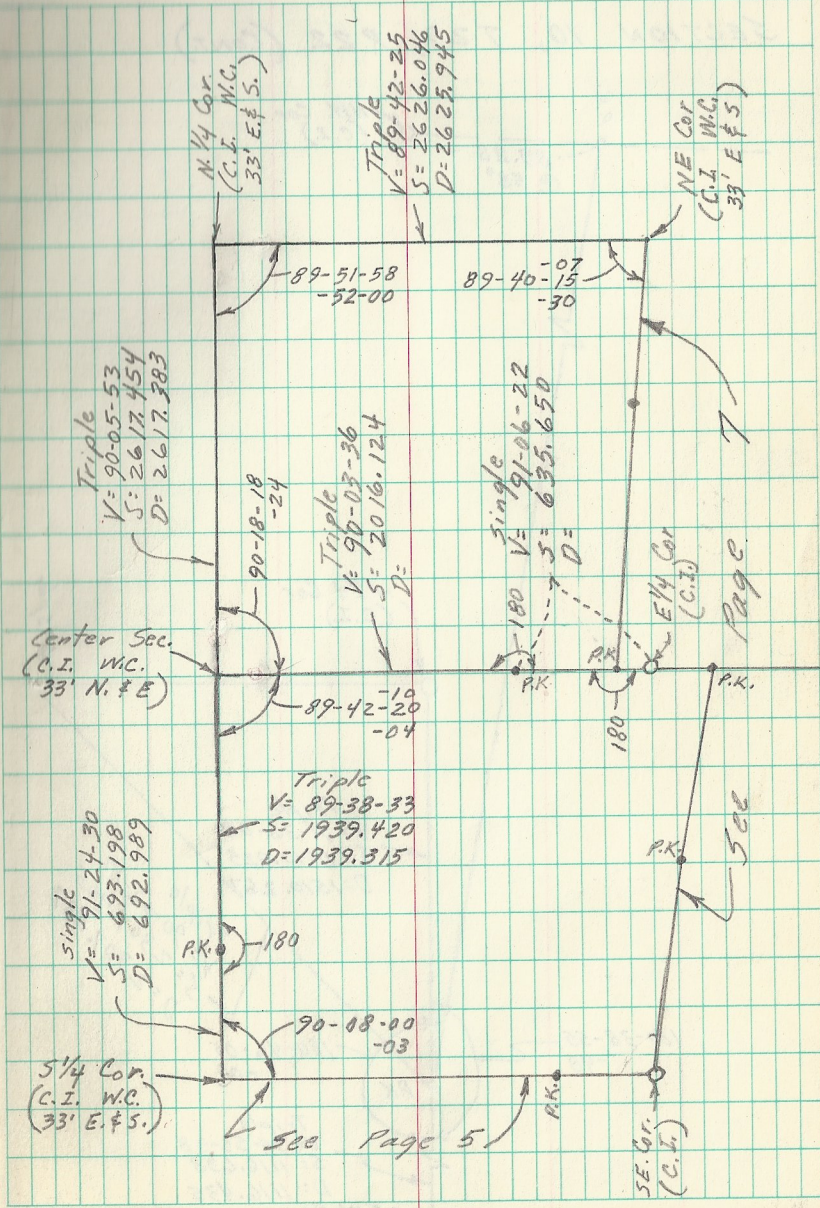 N. 1/4 Cor.
(C.I. W.C.
33' E. & S.)
Triple
V= 89-42-25
S= 2626.046
D= 2625.945
NE Cor
(C.I. W.C.
33' E & S)
89-51-58
-52-00
-07
89-40-15
-30
Triple
V= 90-05-53
S= 2617.454
D= 2617.383
90-18-18
-24
Triple
V= 90-03-36
S= 2016.124
D=
single
V= 91-06-22
S= 635.650
D=
180
P.K.
P.K.
180
E 1/4 Cor
(C.I.)
P.K.
See Page 7
Center Sec.
(C.I. W.C.
33' N. & E)
-10
89-42-20
-04
Triple
V= 89-38-33
S= 1939.420
D= 1939.315
single
V= 91-24-30
S= 693.198
D= 692.989
P.K.
180
P.K.
90-08-00
-03
S 1/4 Cor.
(C.I. W.C.
33' E. & S.)
See Page 5
P.K.
SE. Cor.
(C.I.)